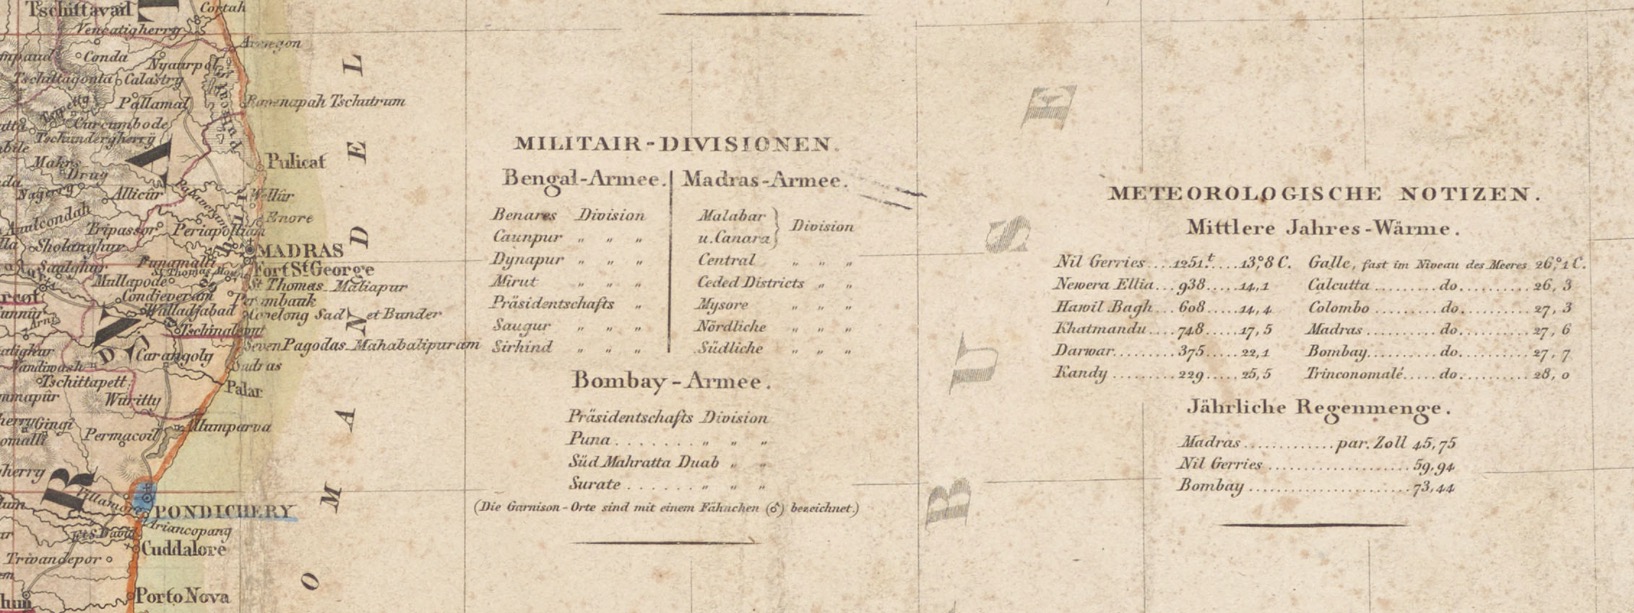 Tschittavail
Cortah
Vencatigherry
Armegon
Conda
Nyaurpol
Calastry
Pallamal
Ramenapah Tschutrum
Curcumbode
Tschundergherry
Pulicat
Makr
Drug
Nagery
Allicur
Enore
Tripassor
Periapollium
Sholanghur
MADRAS
Funamalli
Fort St George
Saulghur
St Thomas Mount
Mullapode
St Thomas_Maliapur
Condjeveram
Walladjabad
Covelong Sad et Bunder
Carangoly
Seven Pagodas_Mahabalipuram
Sadras
Tschittapett
Palar
Wuritty
Gingi
Permacoil
Allumparva
PONDICHERY
Ariancopang
Cuddalore
Triwandepor
Porto Nova
R N A
O M A N D E L
B U S E
MILITAIR-DIVISIONEN.
Bengal-Armee. | Madras-Armee.
Benares Division
Caunpur " " "
Dynapur " " "
Mirut " " "
Präsidentschafts "
Saugur " " "
Sirhind " " "
Malabar
u. Canara } Division
Central " " "
Ceded Districts " "
Mysore " " "
Nördliche " " "
Südliche " " "
Bombay-Armee.
Präsidentschafts Division
Puna . . . . . . . " " "
Süd Mahratta Duab " "
Surate . . . . . . " " "
(Die Garnison-Orte sind mit einem Fähnchen (♂) bezeichnet.)
METEOROLOGISCHE NOTIZEN.
Mittlere Jahres-Wärme.
Nil Gerries....1251.t.....13,°8 C.
Newera Ellia...938......14,1
Hawil Bagh...608......14,4
Khatmandu...748......17,5
Darwar.........375......22,1
Kandy..........229......25,5
Galle, fast im Niveau des Meeres 26,°1 C.
Calcutta..........do...........26,3
Colombo..........do...........27,3
Madras............do...........27,6
Bombay...........do...........27,7
Trinconomalé.....do...........28,0
Jährliche Regenmenge.
Madras..............par. Zoll 45,75
Nil Gerries......................59,94
Bombay.........................73,44